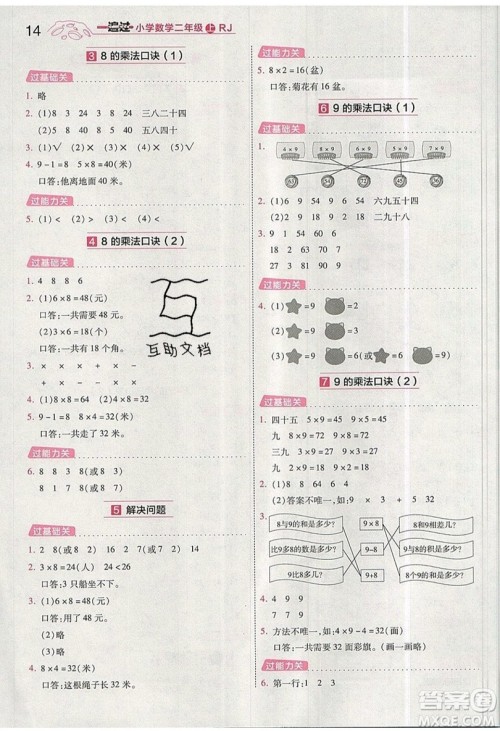 14 一遍过 小学数学二年级 上 RJ
3 8的乘法口诀(1)
过基础关
1. 略
2. (1)8 3 24 8 24 三八二十四
(2)5 8 40 5 40 五八四十
3. (1)√ (2)√ (3)× (4)×(5)√
4. 9-1=8 5×8=40(米)
口答:他离地面40米。
过能力关
5. (1)< (2)< (3)<
4 8的乘法口诀(2)
过基础关
1. 略
2. (1)6×8=48(元)
口答:一共需要48元。
(2)3×6=18(个)
口答:一共有18个角。
3. × × × +
× + × -
过能力关
4. (1)82 (2)64 (3)40
5. 9-1=8 8×4=32(米)
口答:一共走了32米。
过能力关
6. 1 8 2 7 8(或8 7)
8 1 7 8 3(或3 8)
5 解决问题
过基础关
1. 2 8(或8 2) 4 8(或8 4)
2. 3×8=24(人) 24<26
口答:3只船坐不下。
3. (1)6×8=48(元)
口答:用了48元。
(2)略
(3)略
4. 8×4=32(米)
口答:这根绳子长32米。
互助文档
过能力关
5. 8×2=16(盆)
口答:菊花有16盆。
6 9的乘法口诀(1)
过基础关
1. 4×9 6×9 9×9 5×9 7×9
2. (1)9 6 54 9 54 六九五十四
(2)2 9 18 2 18 二九十八
3. 9 18 27 36
1 32 67 90
4 5 6 7
过能力关
4. (1)=9 =9
(2)=9 =9
(3)+=18
7 9的乘法口诀(2)
过基础关
1. 四十五 5×9=45 9×5=45
九 9×1=9 1×9=9
九 8×9=72 9×8=72
2. (1)9 5
(2)答案不唯一,如5 4
3. 8与9的和是多少? 9×8 8和9相差几?
比9多8的数是多少? 9-8 8与9的积是多少?
9比8多几? 9+8 8个9的和是多少?
4. 1 4 9 9
9 7 9
5. 方法不唯一,如9×4=36(面)
口答:一共画36面彩旗。(画一画略)
过能力关
6. 第一行:1 2 3
答案圈
MXQE.COM